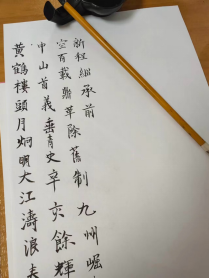 新程繼承前
百載革除舊制九州崛
中山首義垂青史辛亥餘輝
黃鶴樓頭月炯明大江濤浪